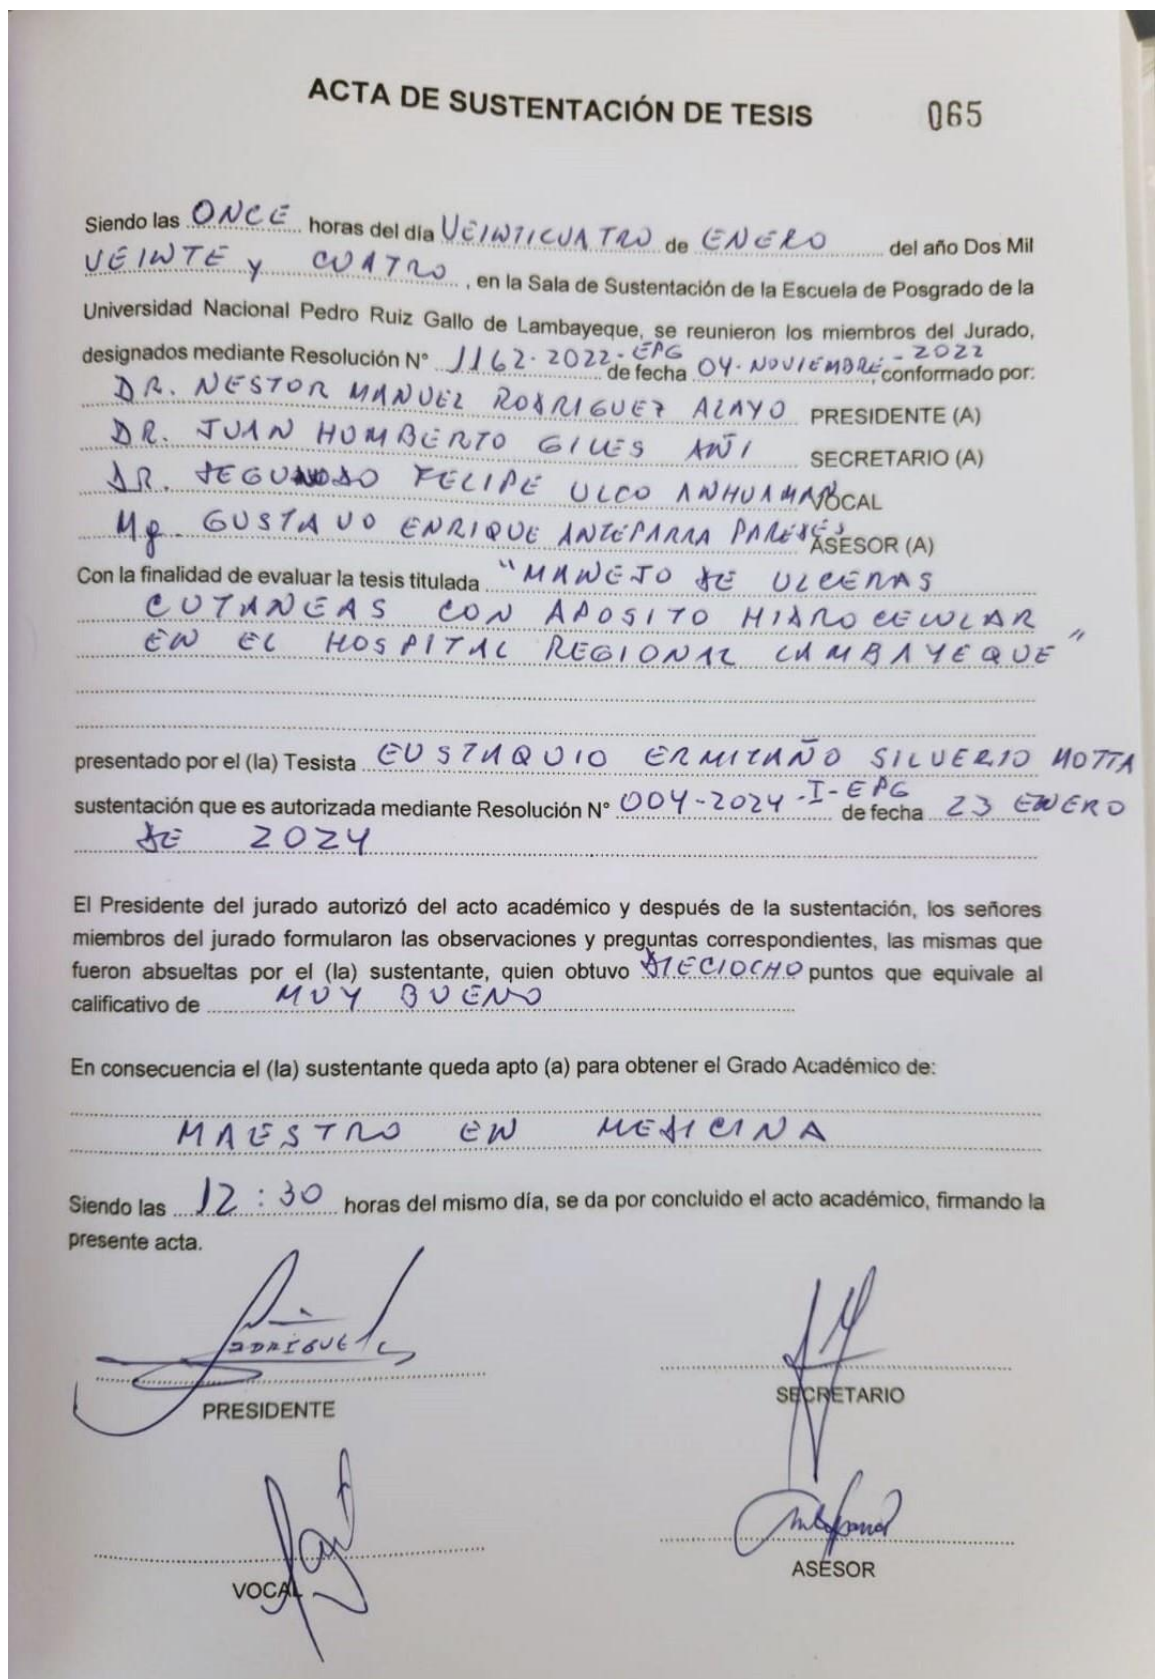 ACTA DE SUSTENTACIÓN DE TESIS 065
Siendo las ONCE horas del día VEINTICUATRO de ENERO del año Dos Mil
VEINTE y CUATRO, en la Sala de Sustentación de la Escuela de Posgrado de la
Universidad Nacional Pedro Ruiz Gallo de Lambayeque, se reunieron los miembros del Jurado,
designados mediante Resolución N° 1162-2022-EPG de fecha 04-NOVIEMBRE-2022, conformado por:
DR. NESTOR MANUEL RODRIGUEZ ALAYO PRESIDENTE (A)
DR. JUAN HUMBERTO GILES AÑI SECRETARIO (A)
DR. SEGUNDO FELIPE ULCO ANHUAMAN VOCAL
Mg. GUSTAVO ENRIQUE ANTEPARRA PAREDES ASESOR (A)
Con la finalidad de evaluar la tesis titulada "MANEJO DE ULCERAS
CUTANEAS CON APOSITO HIDROCELULAR
EN EL HOSPITAL REGIONAL LAMBAYEQUE"
presentado por el (la) Tesista EUSTAQUIO ERMITAÑO SILVERIO MOTTA
sustentación que es autorizada mediante Resolución N° 004-2024-I-EPG de fecha 23 ENERO
DE 2024
El Presidente del jurado autorizó del acto académico y después de la sustentación, los señores
miembros del jurado formularon las observaciones y preguntas correspondientes, las mismas que
fueron absueltas por el (la) sustentante, quien obtuvo DIECIOCHO puntos que equivale al
calificativo de MUY BUENO
En consecuencia el (la) sustentante queda apto (a) para obtener el Grado Académico de:
MAESTRO EN MEDICINA
Siendo las 12:30 horas del mismo día, se da por concluido el acto académico, firmando la
presente acta.
PRESIDENTE SECRETARIO
VOCAL ASESOR